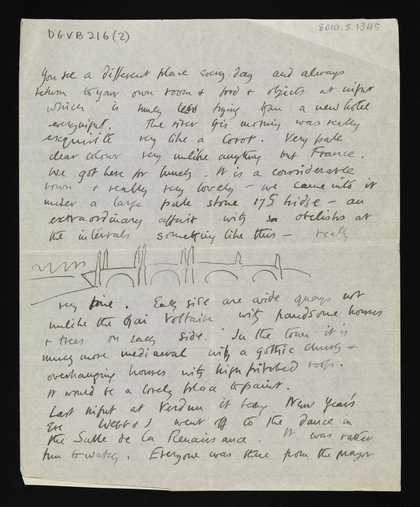 DGVB 216(2)
8010.5.1345
You see a different place every day and always
return to your own room & food & objects at night
which is much less trying than a new hotel
every night. The river this morning was really
exquisite very like a Corot. Very pale
clear colour very unlike anything but France.
We got here for lunch. It is a considerable
town & really very lovely – we came into it
under a large pale stone 17S bridge – an
extraordinary affair with obelisks at
the intervals something like this – really
very fine. Each side are wide quays not
unlike the Quai Voltaire with handsome houses
& trees on each side. In the town it is
much more mediaeval with a gothic church –
overhanging houses with high pitched roofs.
It would be a lovely place to paint.
Last night at Verdun it being New Year's
Eve Webb & I went off to the dance in
the Salle de la Renaissance. It was rather
fun to watch. Everyone was there from the mayor